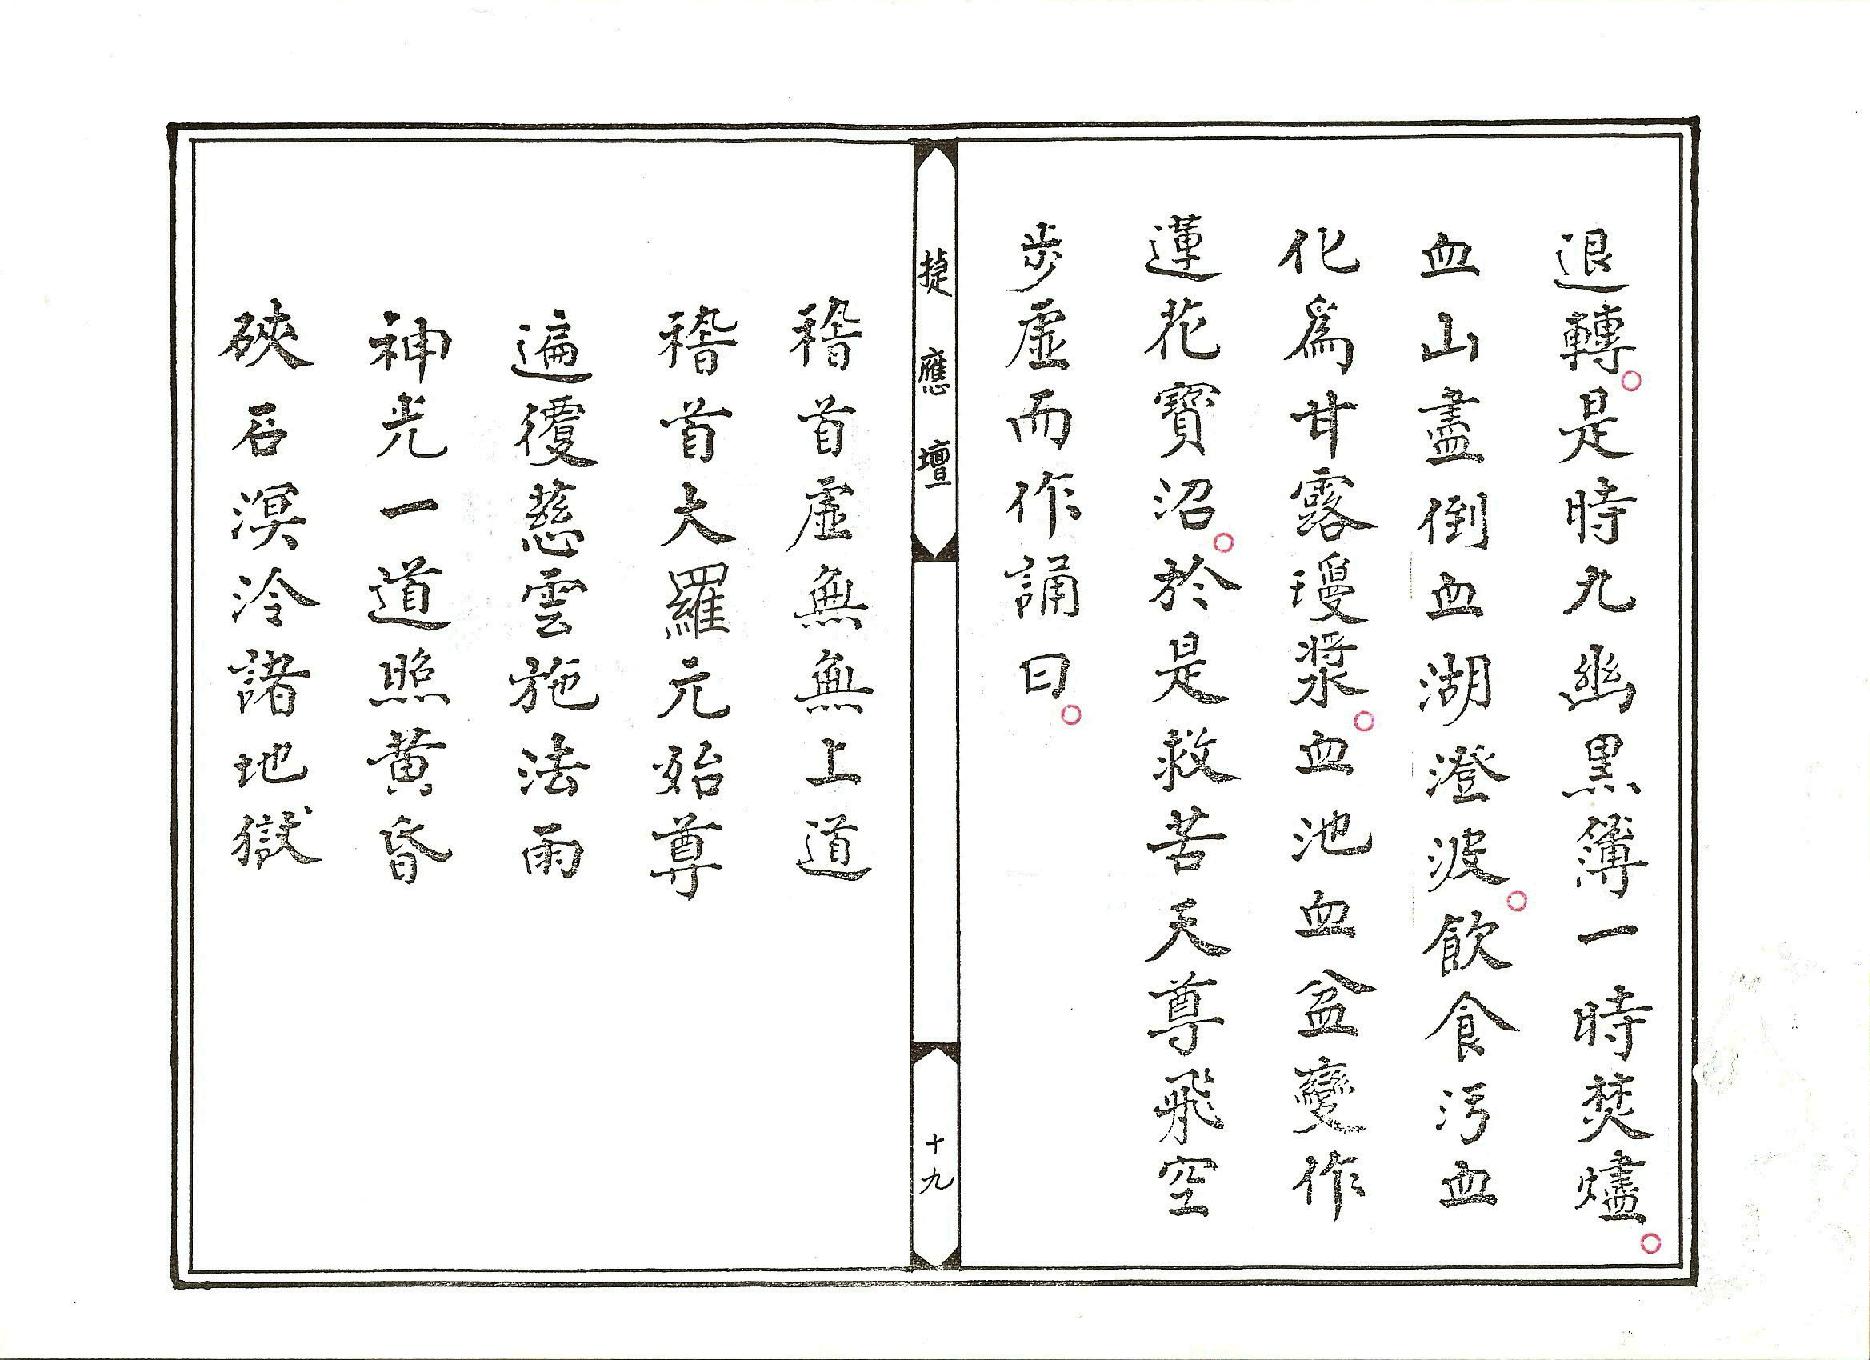 退轉。是時九幽黑簿一時焚燼。
血山盡倒血湖澄波。飲食污血
化為甘露瓊漿。血池血盆變作
蓮花寶沼。於是救苦天尊飛空
步虛而作誦曰。
捷應壇
十九
稽首虛無無上道
稽首大羅元始尊
遍覆慈雲施法雨
神光一道照黃昏
硤石溟泠諸地獄